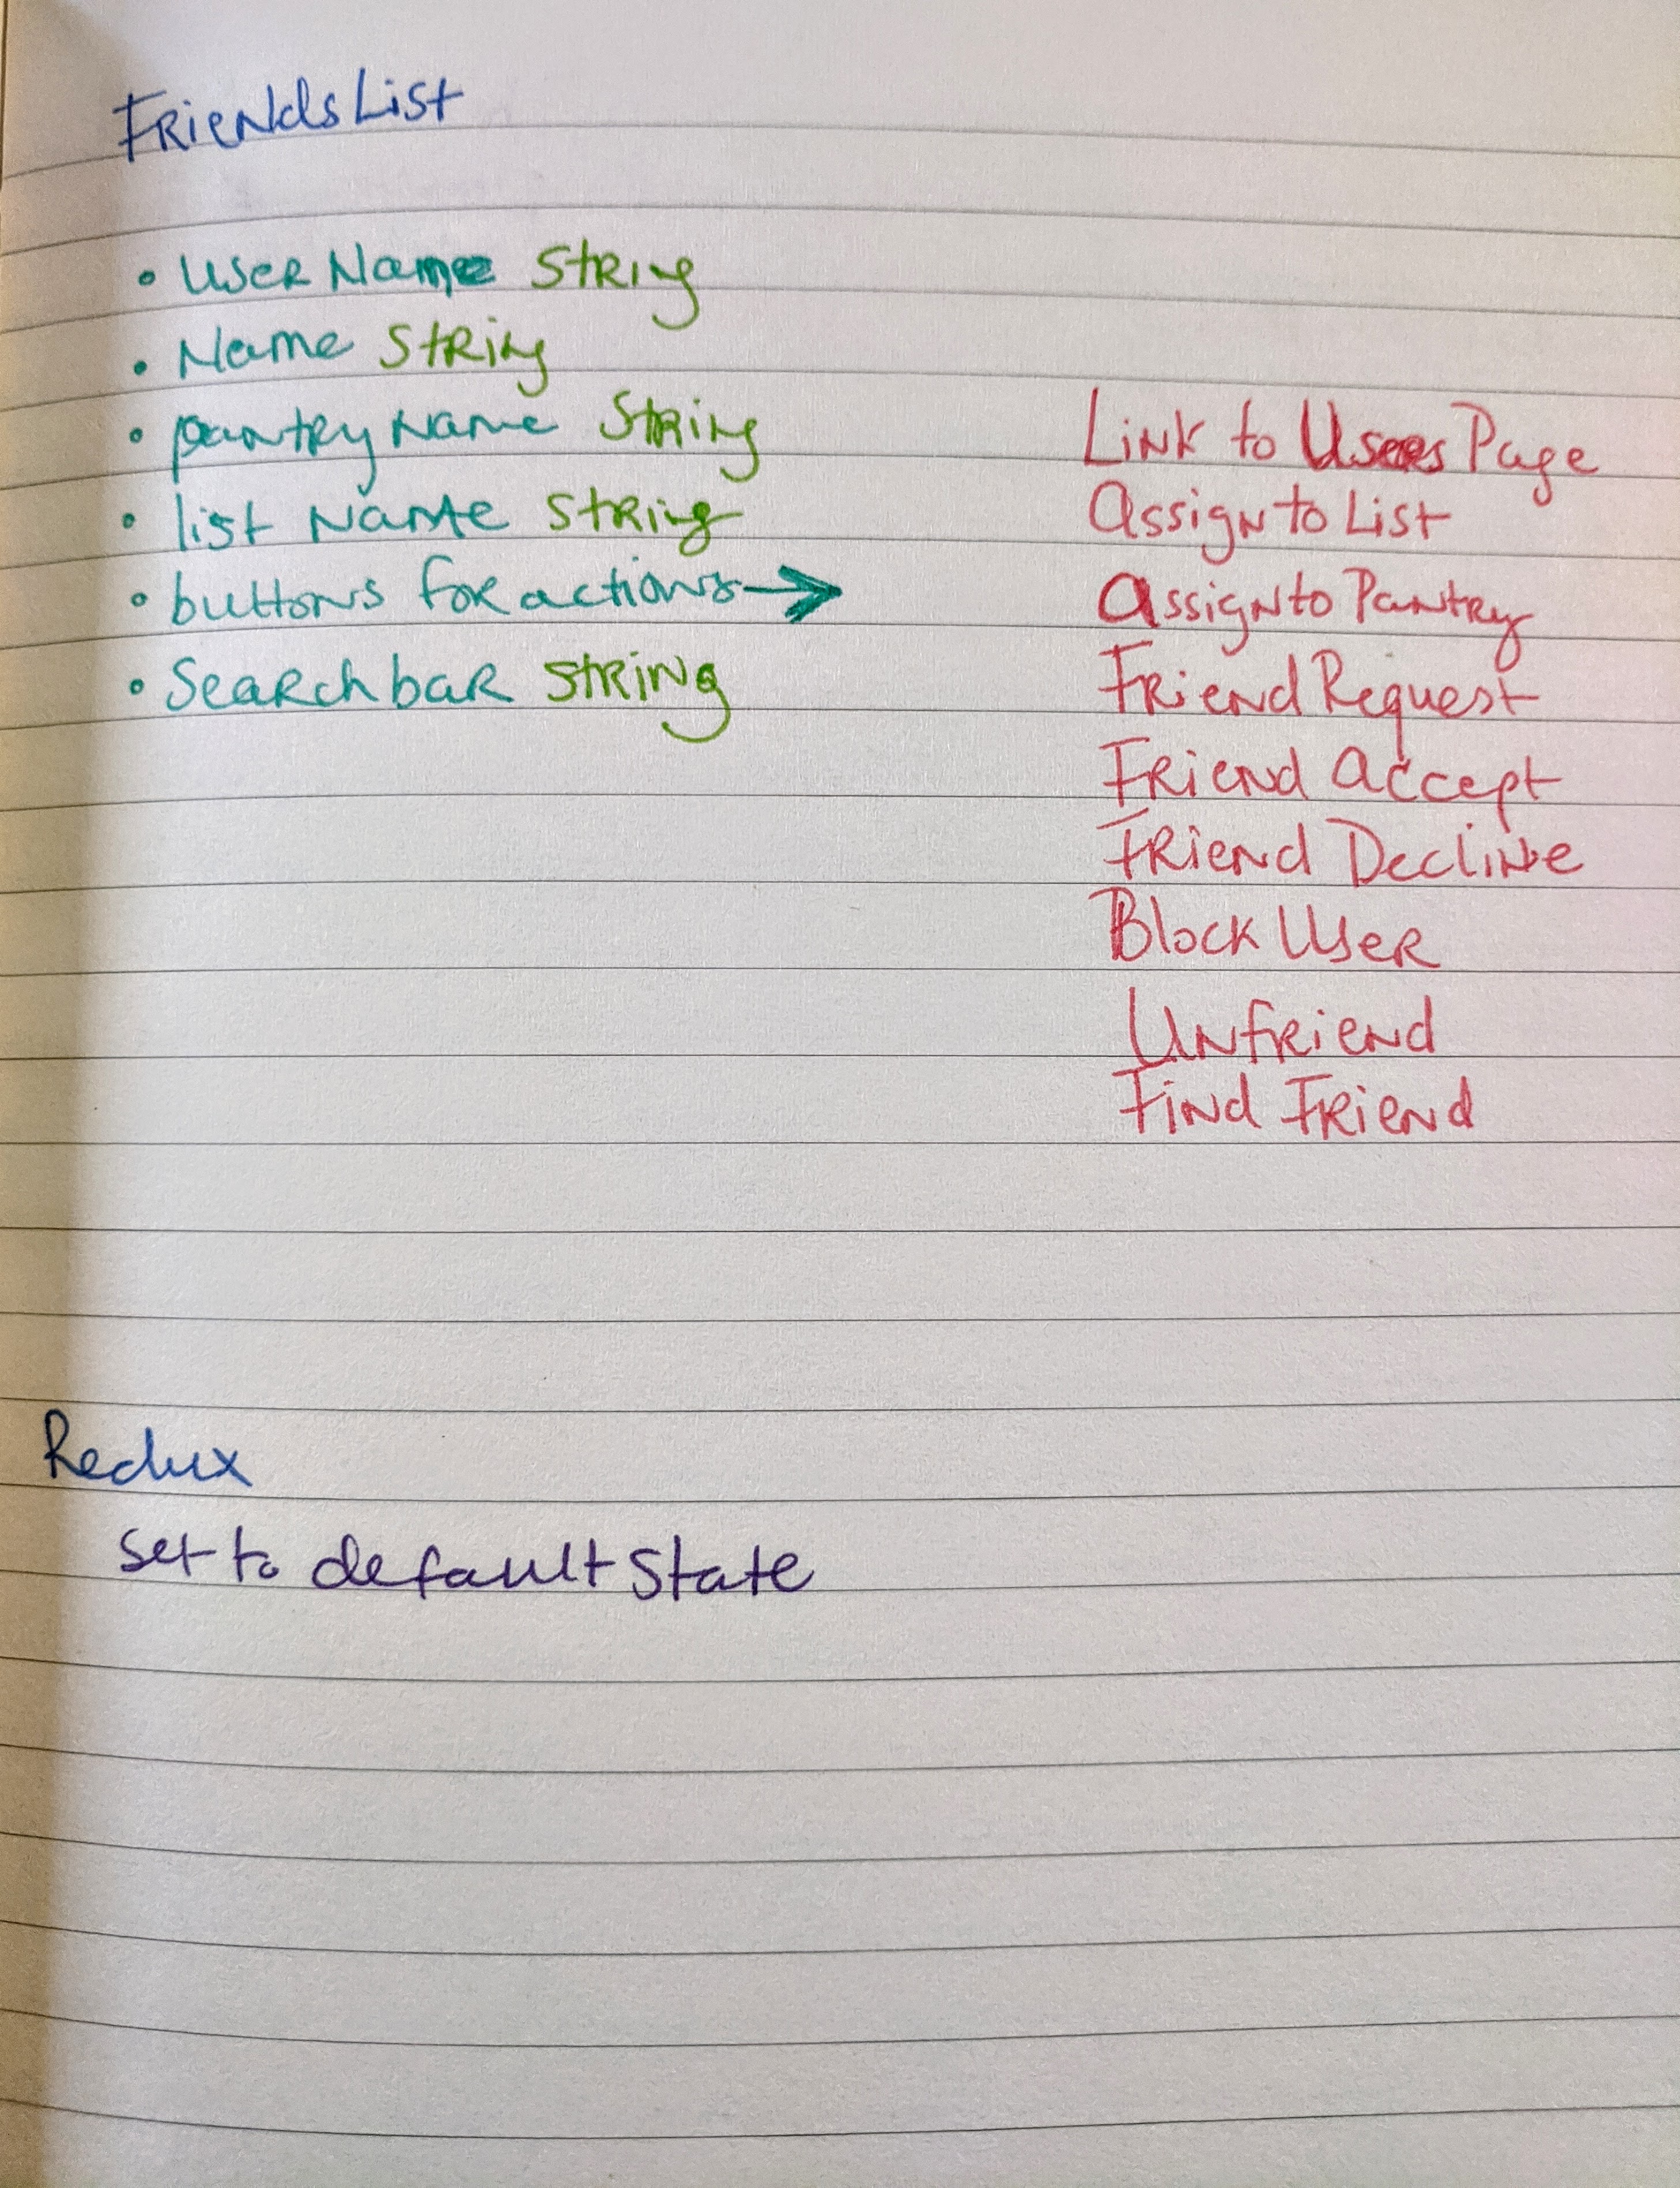 Friends List
• User Name String
• Name String
• pantry Name String
• list Name String
• buttons for actions →
• Search bar String
Link to Users Page
Assign to List
Assign to Pantry
Friend Request
Friend Accept
Friend Decline
Block User
Unfriend
Find Friend
Redux
set to default State